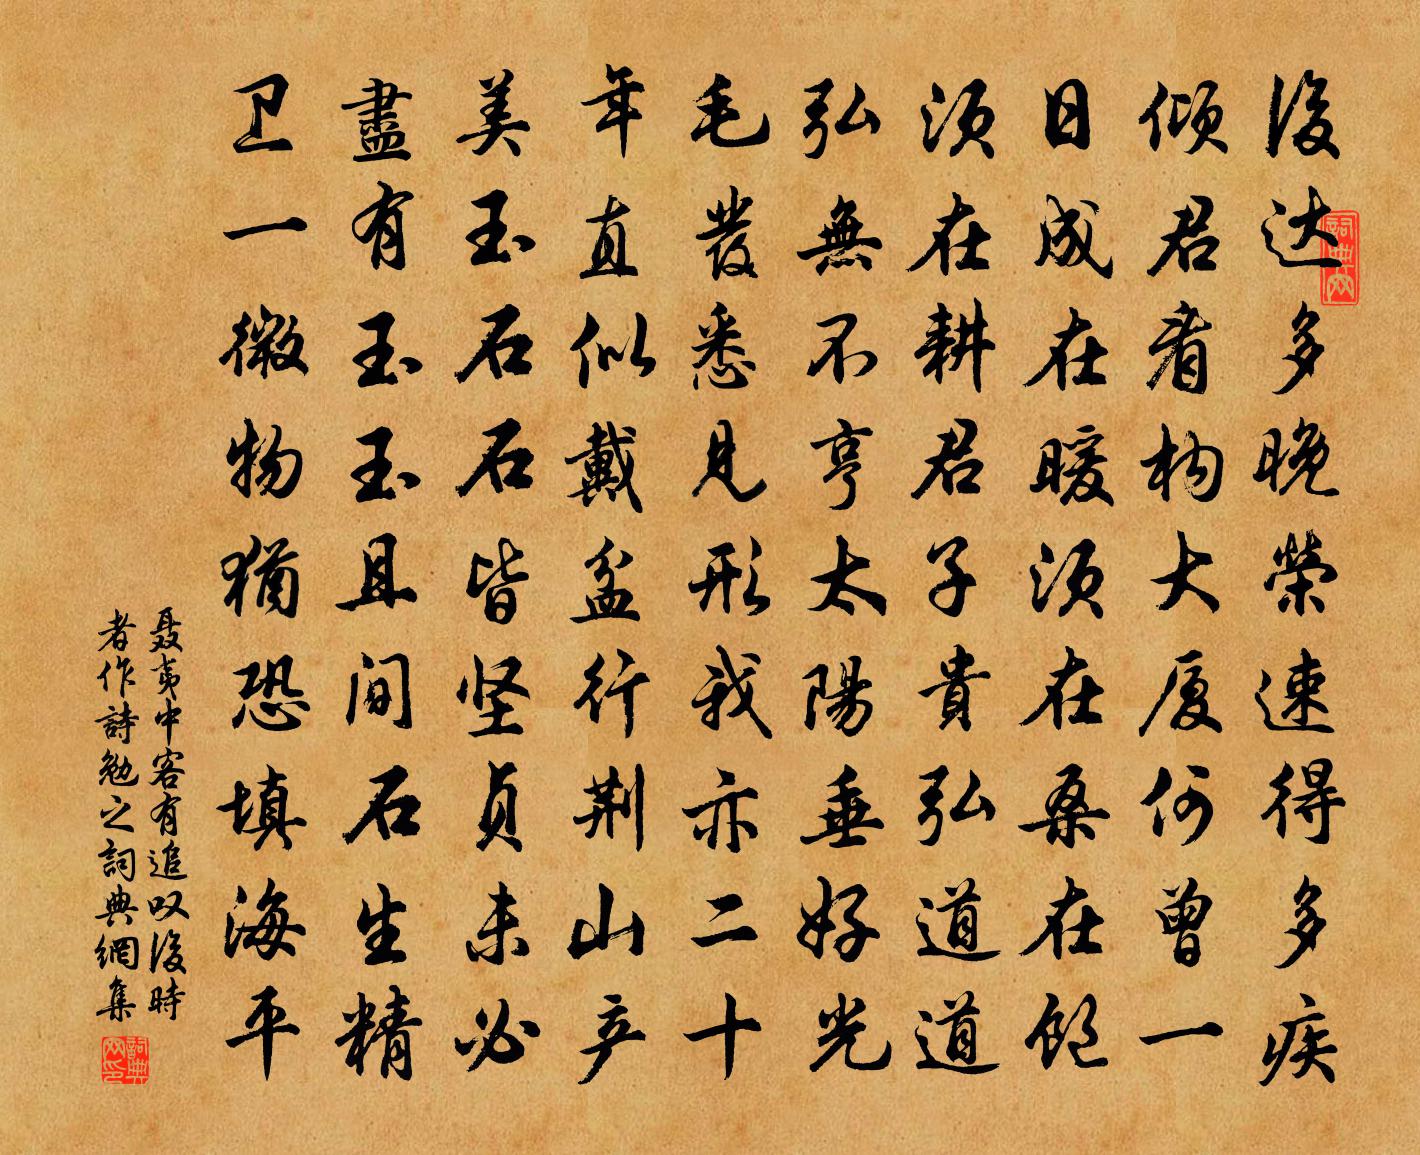 後达多晚榮速得多疾
倾君看构大厦何曾一
日成在暖须在桑在饱
须在耕君子貴弘道道
弘無不亨太陽垂好光
毛發悉見形我亦二十
年直似戴盆行荆山产
美玉石石皆坚贞未必
盡有玉玉且间石生精
卫一微物猶恐填海平
聂夷中客有追叹後時
者作詩勉之詞典網集
詞典网
詞典网印